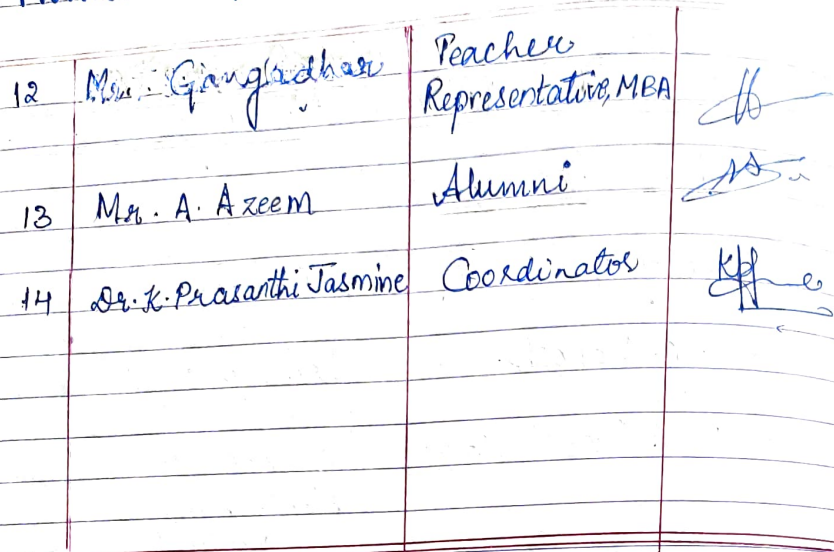 Teacher
12 Mr. Gangladhar Representative, MBA
13 Mr. A. Azeem Alumni
14 Dr. K. Prasanthi Jasmine Coordinator